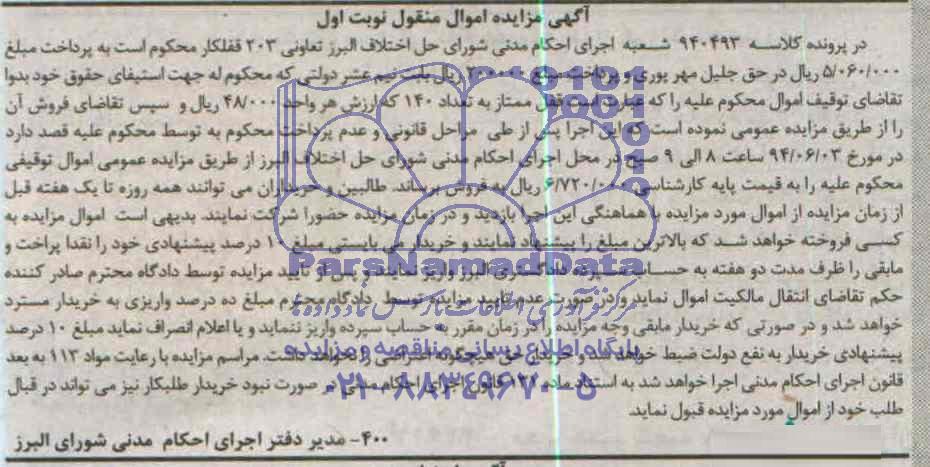 آگهی مزایده اموال منقول نوبت اول
در پرونده کلاسه ۹۴۰۴۹۳ شعبه اجرای احکام مدنی شورای حل اختلاف البرز تعاونی ۲۰۳ قفلکار محکوم است به پرداخت مبلغ
۵/۰۶۰/۰۰۰ ریال در حق جلیل مهر پوری و پرداخت مبلغ ریال بابت نیم عشر دولتی که محکوم له جهت استیفای حقوق خود بدوا
تقاضای توقیف اموال محکوم علیه را که عبارت است قفل ممتاز به تعداد ۱۴۰ که ارزش هر واحد ۴۸/۰۰۰ ریال و سپس تقاضای فروش آن
را از طریق مزایده عمومی نموده است که این اجرا پس از طی مراحل قانونی و عدم پرداخت محکوم به توسط محکوم علیه قصد دارد
در مورخ ۹۴/۰۶/۰۳ ساعت ۸ الی ۹ صبح در محل اجرای احکام مدنی شورای حل اختلاف البرز از طریق مزایده عمومی اموال توقیفی
محکوم علیه را به قیمت پایه کارشناسی ۶/۷۲۰/۰۰۰ ریال به فروش برساند. طالبین و خریداران می توانند همه روزه تا یک هفته قبل
از زمان مزایده از اموال مورد مزایده با هماهنگی این اجرا بازدید و در زمان مزایده حضورا شرکت نمایند. بدیهی است اموال مزایده به
کسی فروخته خواهد شد که بالاترین مبلغ را پیشنهاد نمایند و خریدار می بایستی مبلغ ۱۰ درصد پیشنهادی خود را نقدا پراخت و
مابقی را ظرف مدت دو هفته به حساب سپرده دادگستری البرز واریز نمایند و پس از تایید مزایده توسط دادگاه محترم صادر کننده
حکم تقاضای انتقال مالکیت اموال نماید و در صورت عدم تایید مزایده توسط دادگاه محترم مبلغ ده درصد واریزی به خریدار مسترد
خواهد شد و در صورتی که خریدار مابقی وجه مزایده را در زمان مقرر به حساب سپرده واریز ننماید و یا اعلام انصراف نماید مبلغ ۱۰ درصد
پیشنهادی خریدار به نفع دولت ضبط خواهد شد و خریدار حق هیچگونه اعتراضی را نخواهد داشت. مراسم مزایده با رعایت مواد ۱۱۳ به بعد
قانون اجرای احکام مدنی اجرا خواهد شد به استناد ماده ۱۳۱ قانون اجرای احکام مدنی در صورت نبود خریدار طلبکار نیز می تواند در قبال
طلب خود از اموال مورد مزایده قبول نماید.
۴۰۰- مدیر دفتر اجرای احکام مدنی شورای البرز
ParsNamadData
پایگاه اطلاع رسانی مناقصه و مزایده
۰۲۱-۸۸۳۴۹۶۷۰-۵